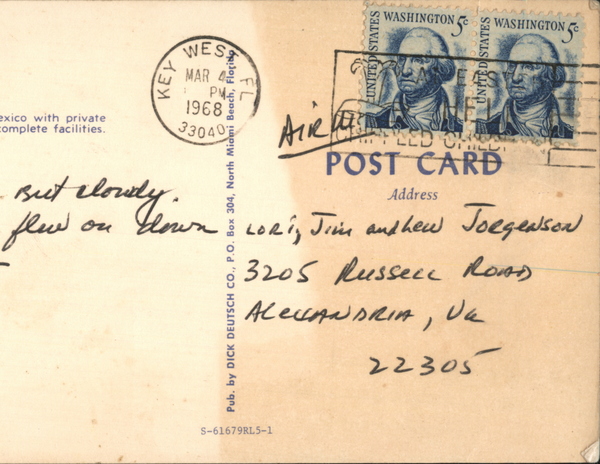 UNITED STATES
WASHINGTON 5c
UNITED STATES
WASHINGTON 5c
KEY WEST, FL
MAR 4
PM
1968
33040
EAST
CRIPPLED CHILD
exico with private
complete facilities.
AIR
POST CARD
Address
But cloudy.
flew on down
Lori, Jim and hew Jorgenson
3205 Russell Road
Alexandria, Va
22305
Pub. by DICK DEUTSCH CO., P.O. Box 304, North Miami Beach, Florida
S-61679RL5-1